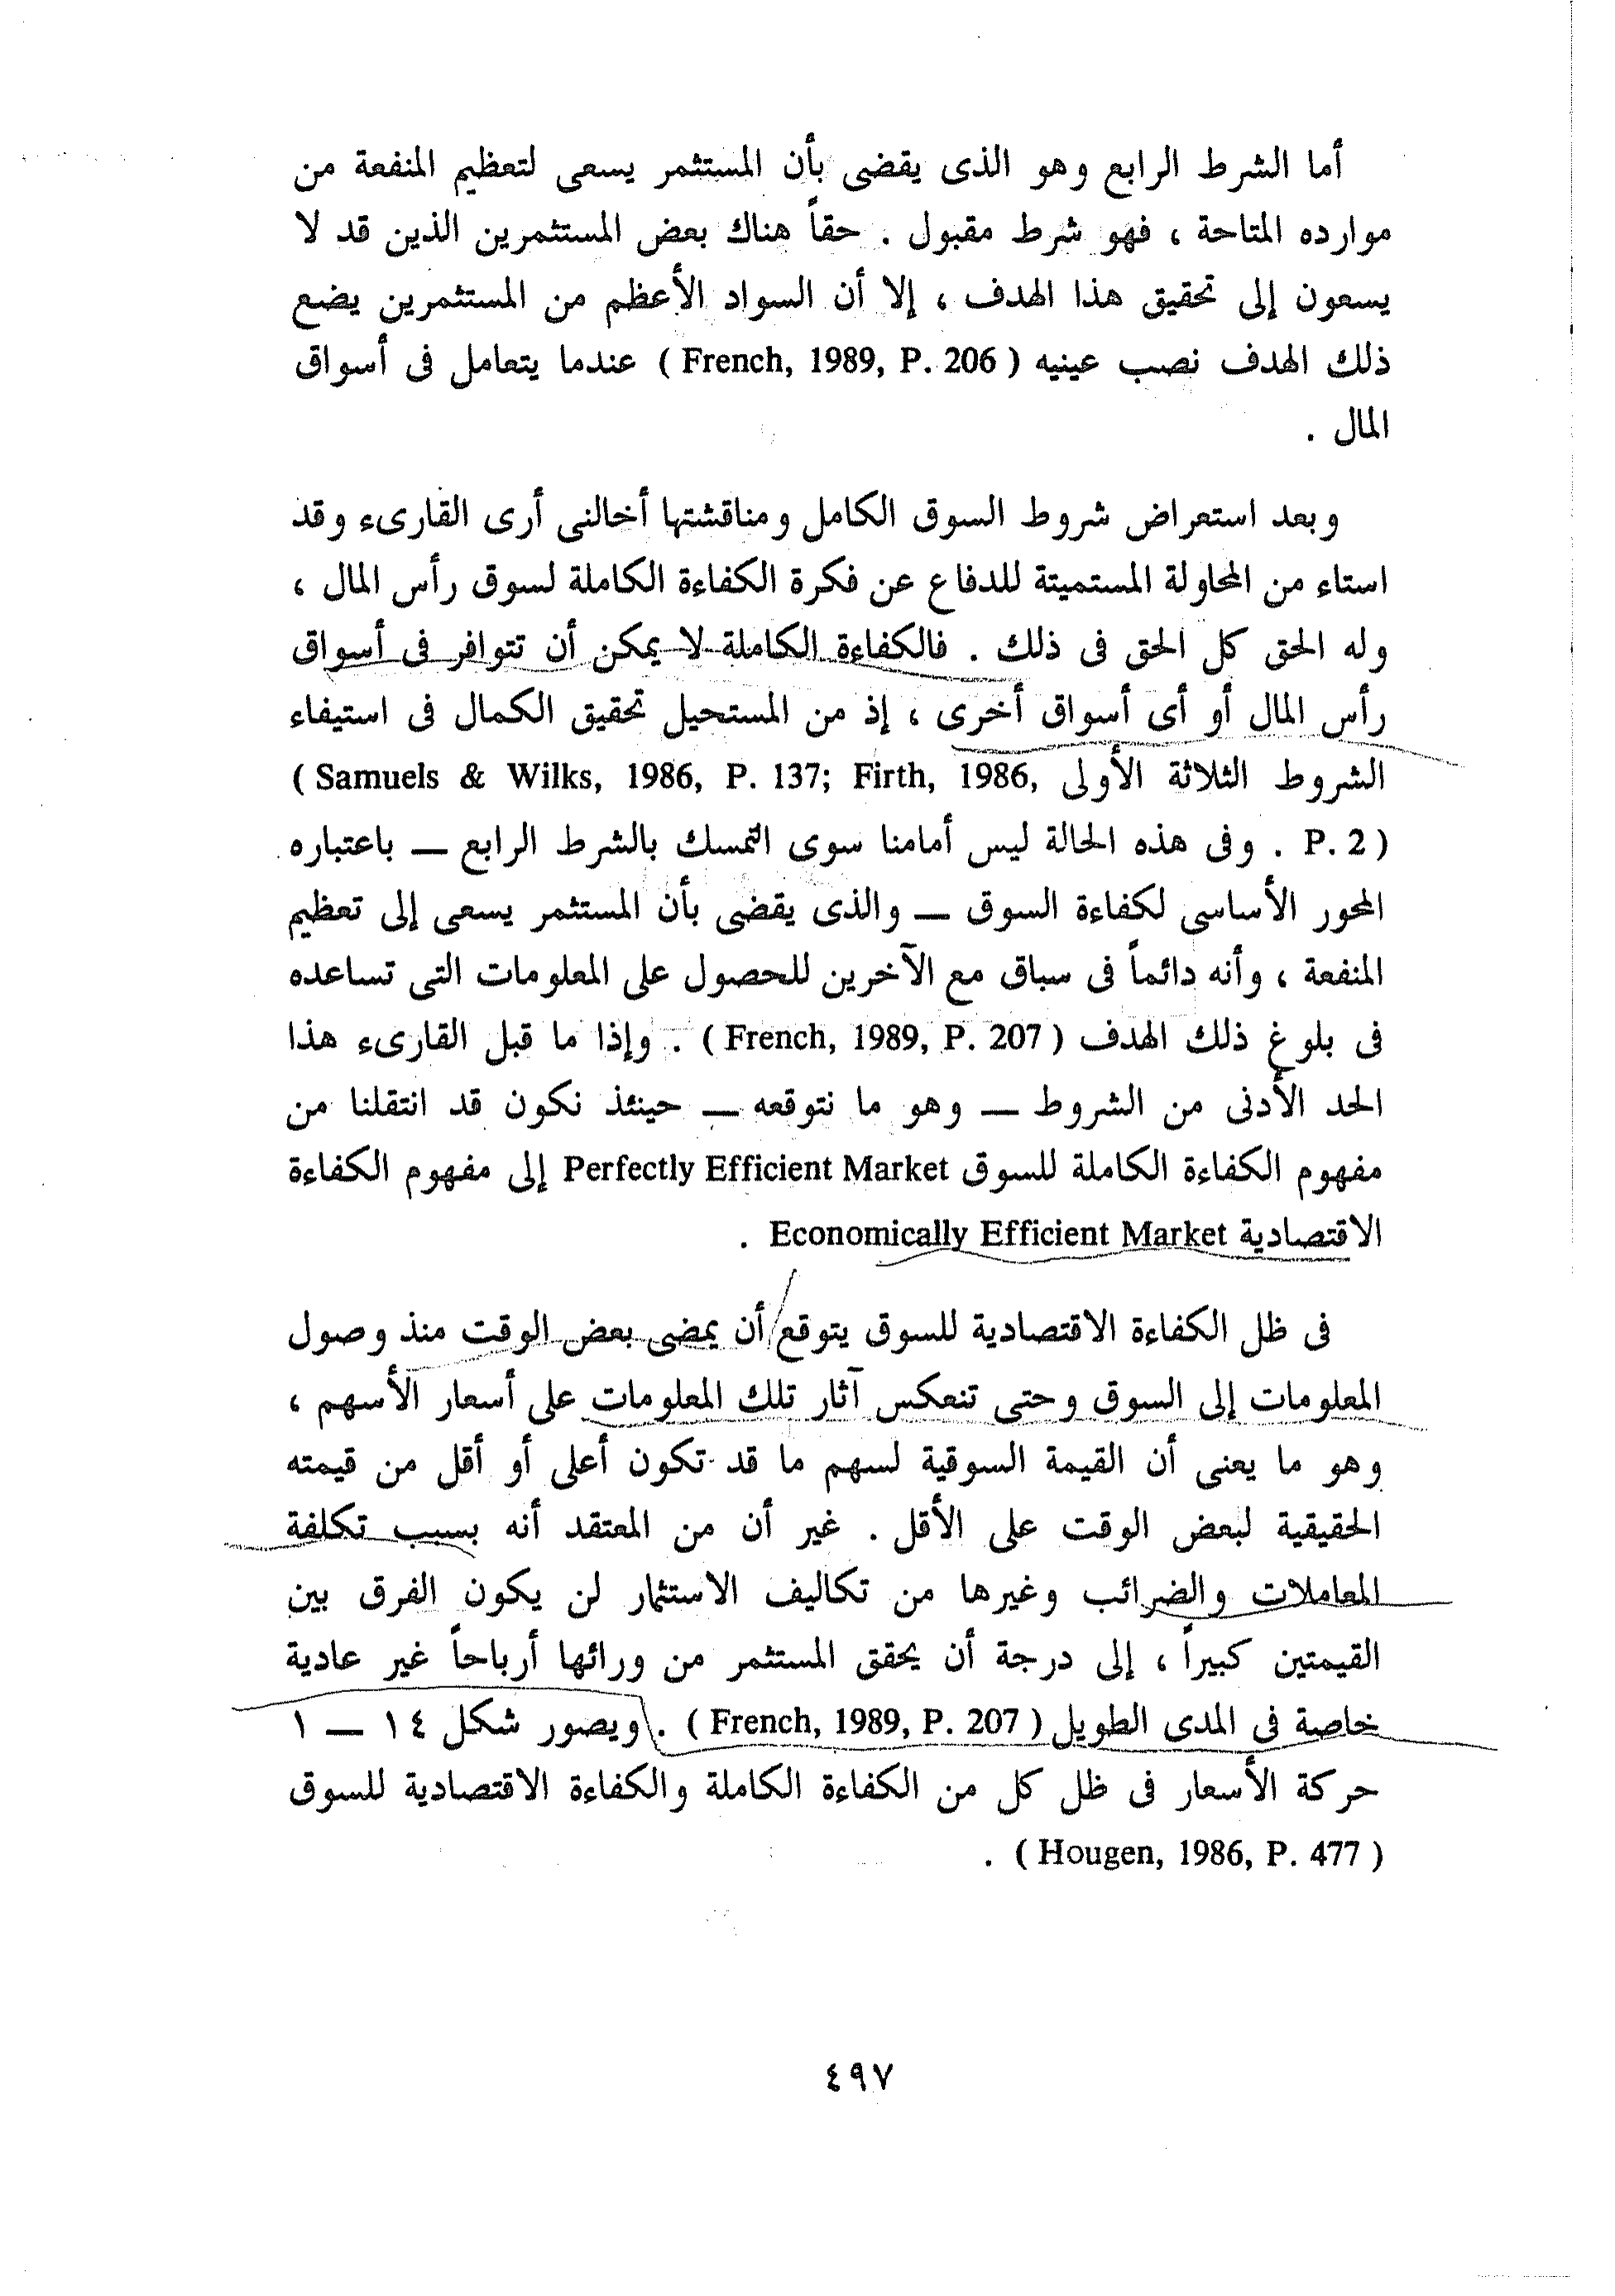 أما الشرط الرابع وهو الذى يقضى بأن المستثمر يسعى لتعظيم المنفعة من
موارده المتاحة ، فهو شرط مقبول . حقاً هناك بعض المستثمرين الذين قد لا
يسعون إلى تحقيق هذا الهدف ، إلا أن السواد الأعظم من المستثمرين يضع
ذلك الهدف نصب عينيه ( French, 1989, P. 206 ) عندما يتعامل فى أسواق
المال .
وبعد استعراض شروط السوق الكامل ومناقشتها أخالنى أرى القارىء وقد
استاء من المحاولة المستميتة للدفاع عن فكرة الكفاءة الكاملة لسوق رأس المال ،
وله الحق كل الحق فى ذلك . فالكفاءة الكاملة لا يمكن أن تتوافر فى أسواق
رأس المال أو أى أسواق أخرى ، إذ من المستحيل تحقيق الكمال فى استيفاء
الشروط الثلاثة الأولى ( Samuels & Wilks, 1986, P. 137; Firth, 1986,
P. 2 ) . وفى هذه الحالة ليس أمامنا سوى التمسك بالشرط الرابع — باعتباره
المحور الأساسى لكفاءة السوق — والذى يقضى بأن المستثمر يسعى إلى تعظيم
المنفعة ، وأنه دائماً فى سباق مع الآخرين للحصول على المعلومات التى تساعده
فى بلوغ ذلك الهدف ( French, 1989, P. 207 ) . وإذا ما قبل القارىء هذا
الحد الأدنى من الشروط — وهو ما نتوقعه — حينئذ نكون قد انتقلنا من
مفهوم الكفاءة الكاملة للسوق Perfectly Efficient Market إلى مفهوم الكفاءة
الاقتصادية Economically Efficient Market .
فى ظل الكفاءة الاقتصادية للسوق يتوقع أن يمضى بعض الوقت منذ وصول
المعلومات إلى السوق وحتى تنعكس آثار تلك المعلومات على أسعار الأسهم ،
وهو ما يعنى أن القيمة السوقية لسهم ما قد تكون أعلى أو أقل من قيمته
الحقيقية لبعض الوقت على الأقل . غير أن من المعتقد أنه بسبب تكلفة
المعاملات والضرائب وغيرها من تكاليف الاستثمار لن يكون الفرق بين
القيمتين كبيراً ، إلى درجة أن يحقق المستثمر من ورائها أرباحاً غير عادية
خاصة فى المدى الطويل ( French, 1989, P. 207 ) . ويصور شكل ١٤ — ١
حركة الأسعار فى ظل كل من الكفاءة الكاملة والكفاءة الاقتصادية للسوق
( Hougen, 1986, P. 477 ) .
٤٩٧